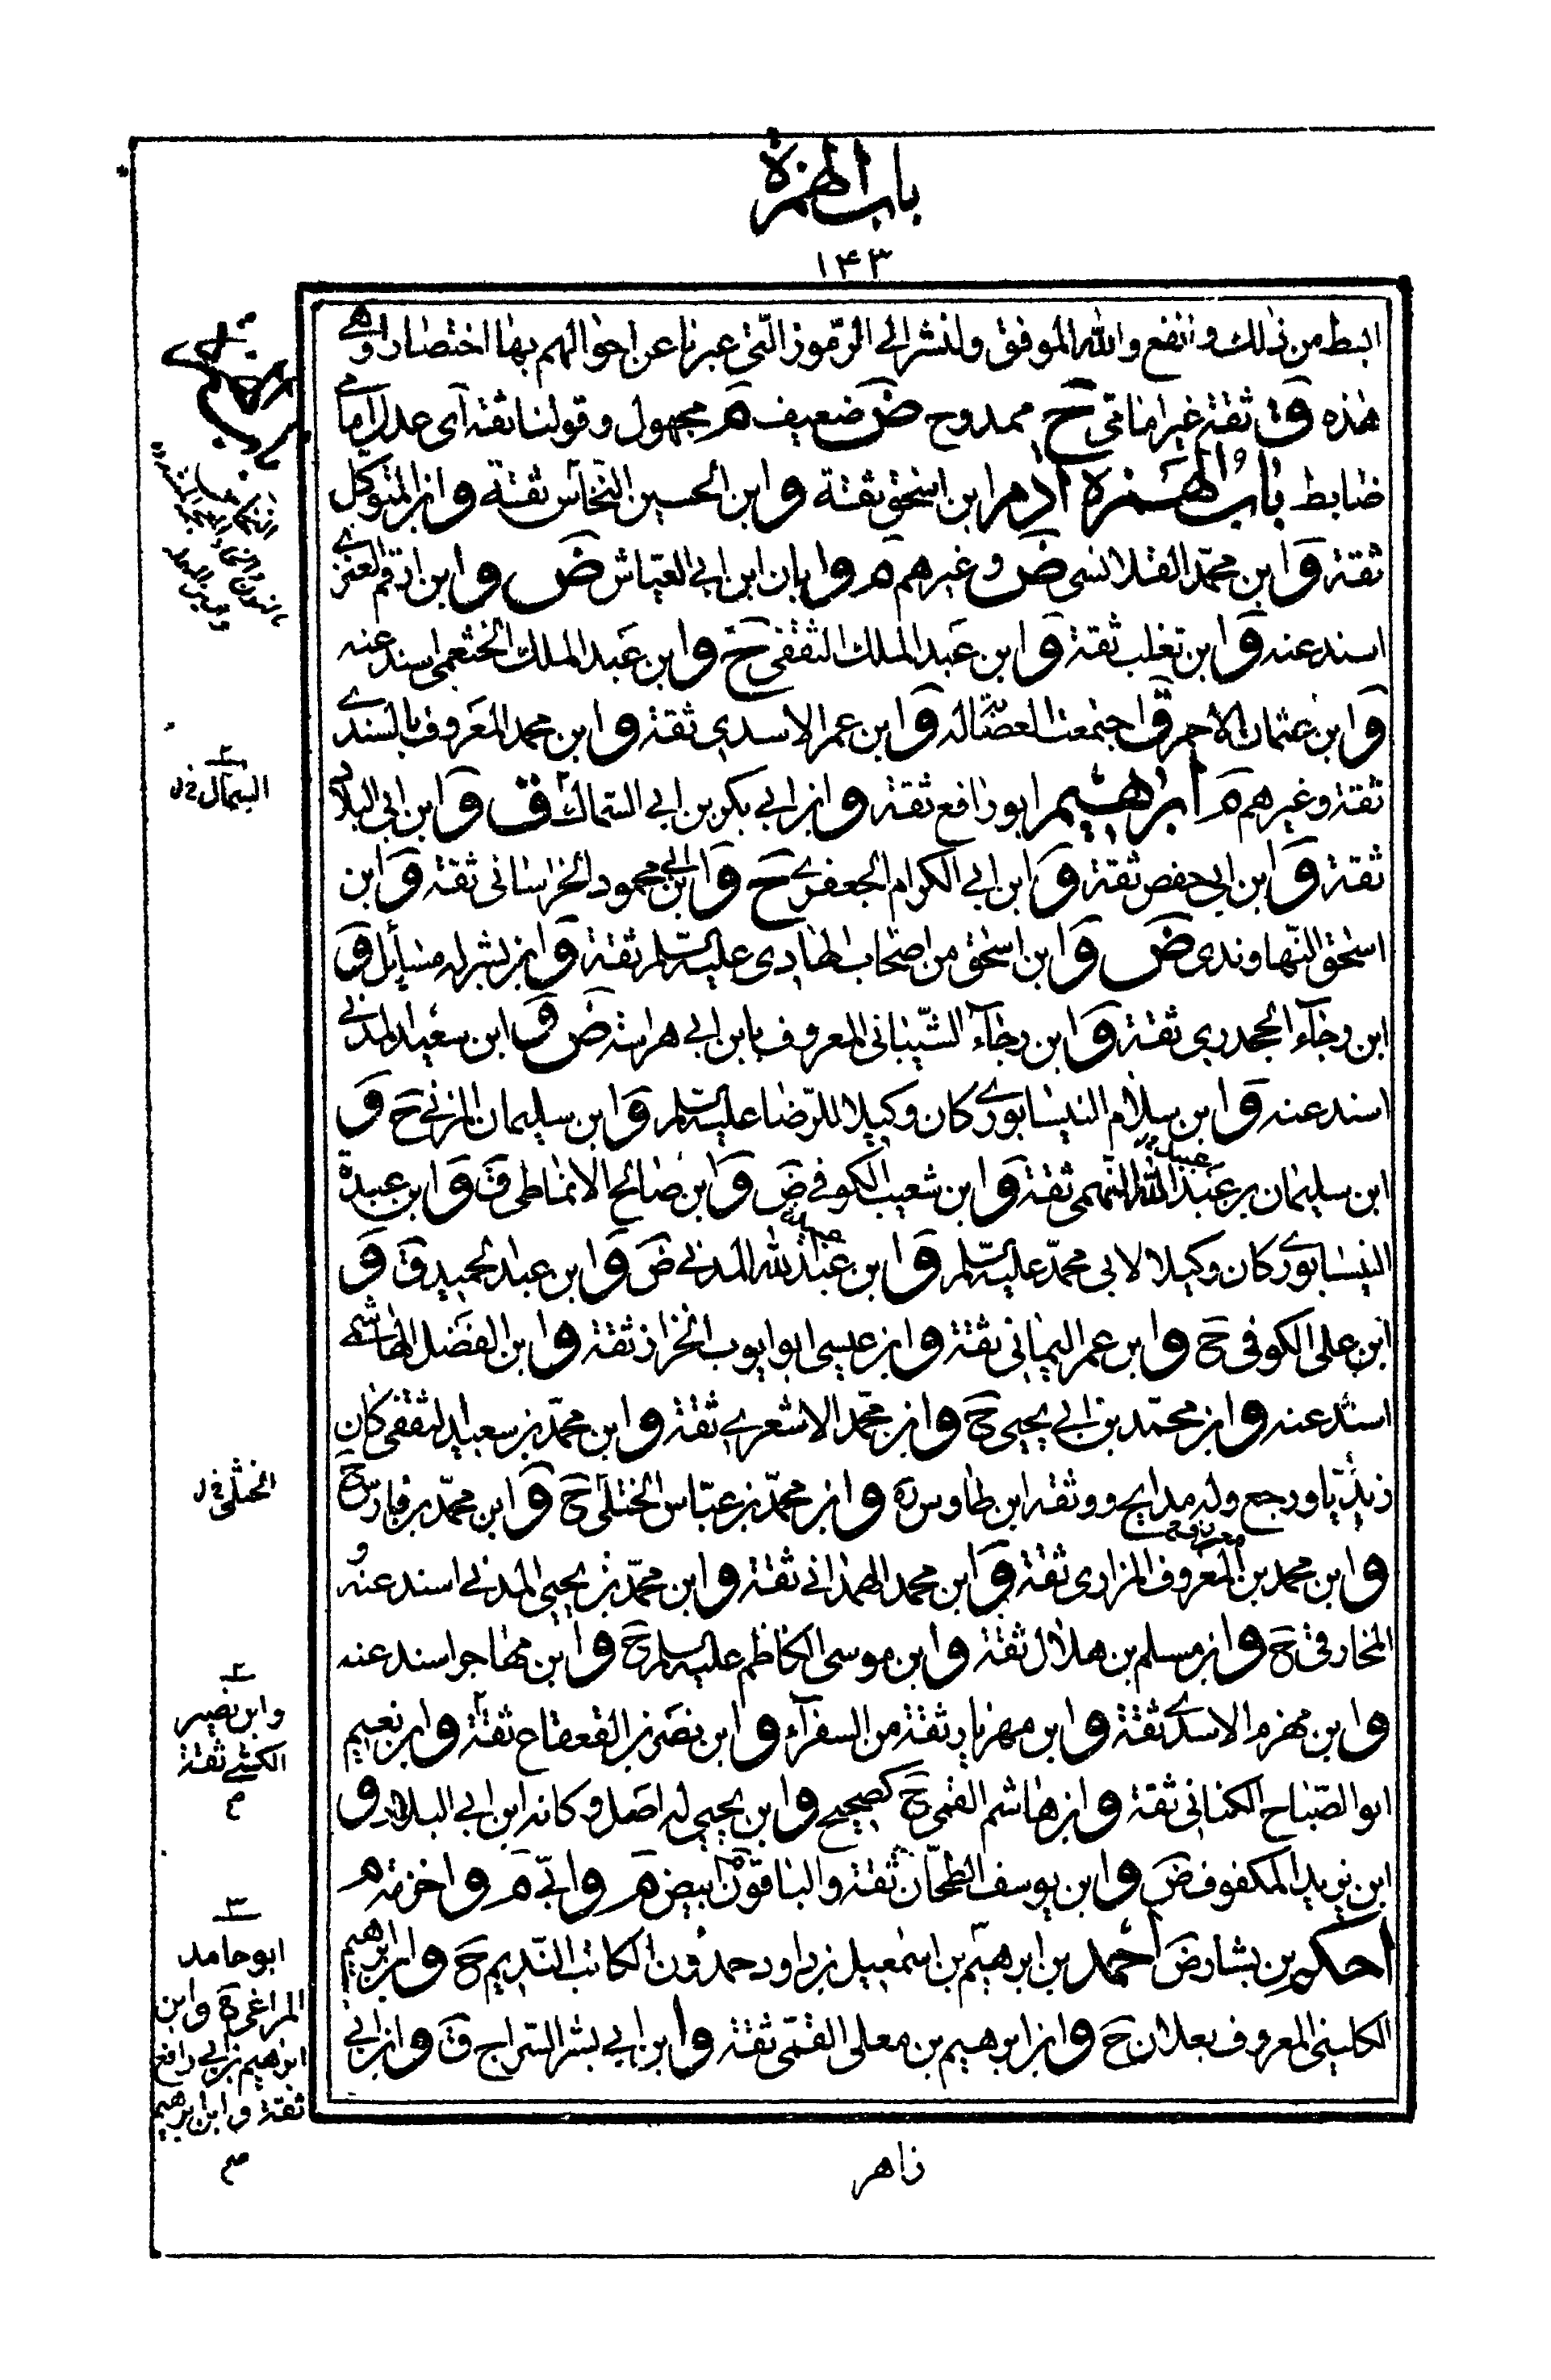 باب الهمزة
۱۴۳
ابسط من ذلك و انفع والله الموفق ولنشر الى الرموز التى عبرنا عن احوالهم بها اختصارا وهى
هذه ق ثقة غير امامى ح ممدوح ض ضعيف م مجهول و قولنا ثقة اى عدل امامى
ضابط باب الهمزة آدم ابن اسحق ثقة و ابن الحسين النخاس ثقة و ابن المتوكل
ثقة و ابن محمد القلانسى ض و غيرهم م و ابان ابن ابى العياش ض و ابن ارقم العنزى
اسند عنه و ابن تغلب ثقة و ابن عبد الملك الثقفى ح و ابن عبد الملك الخثعمى اسند عنه
و ابن عثمان الاحمر ق اجتمعت العصابة له و ابن عمر الاسدى ثقة و ابن محمد المعروف بالسندى
ثقة و غيرهم م ابرهيم ابو رافع ثقة و ابن ابى بكر بن ابى السمال ق و ابن ابى البلاد
ثقة و ابن ابى حفص ثقة و ابن ابى الكرام الجعفرى ح و ابن ابى محمود الخراسانى ثقة و ابن
اسحق النهاوندى ض و ابن اسحق من اصحاب الهادى عليه السلم ثقة و ابن بشر له مسايل و
ابن رجاء الجحدرى ثقة و ابن رجاء الشيبانى المعروف بابن ابى هراسة ض و ابن سعيد المدنى
اسند عنه و ابن سلام النيسابورى كان وكيلا للرضا عليه السلم و ابن سليمان المزنى ح و
ابن سليمان بن عبد الله النهمى ثقة و ابن شعيب الكوفى ض و ابن صالح الانماطى ق و ابن عبدة
النيسابورى كان وكيلا لابى محمد عليه السلم و ابن عبد الله المدنى ض و ابن عبد الحميد ق و
ابن على الكوفى ح و ابن عمر اليمانى ثقة و ابن عيسى ابو ايوب الخراز ثقة و ابن الفضل الهاشمى
اسند عنه و ابن محمد بن ابى يحيى ح و ابن محمد الاشعرى ثقة و ابن محمد بن سعيد الثقفى كان
زيديا و رجع وله مدايح و وثقه ابن طاوس ره و ابن محمد بن عباس الختلى ح و ابن محمد بن فارس ح
و ابن محمد بن المعروف المزارى ثقة و ابن محمد الهمدانى ثقة و ابن محمد بن يحيى المدنى اسند عنه و
المخارقى ح و ابن مسلم بن هلال ثقة و ابن موسى الكاظم عليه السلم ح و ابن مهاجر اسند عنه
و ابن مهزم الاسدى ثقة و ابن مهزيار ثقة من السفراء و ابن نصر بن القعقاع ثقة و ابن نعيم
ابو الصباح الكنانى ثقة و ابن هاشم القمى ح كصحيح و ابن يحيى له اصل و كانه ابن ابى البلاد و
ابن يزيد المكفوف ض و ابن يوسف الطحان ثقة و الباقون م ابيض م و ابى م و اخزمة م
احكم بن بشار ض احمد بن ابرهيم بن اسمعيل بن داود حمدون الكاتب النديم ح و ابن ابرهيم
الكلينى المعروف بعلان ح و ابن ابرهيم بن معلى القمى ثقة و ابن ابى بشر السراج ق و ابن ابى
زاهر
۲
السمال خ ل
الختلى خ ل
۲
و ابن نصير
الكشى ثقة
م
۳
ابو حامد
المراغى ح و ابن
ابرهيم بن ابى رافع
ثقة و ابن ابرهيم
صح